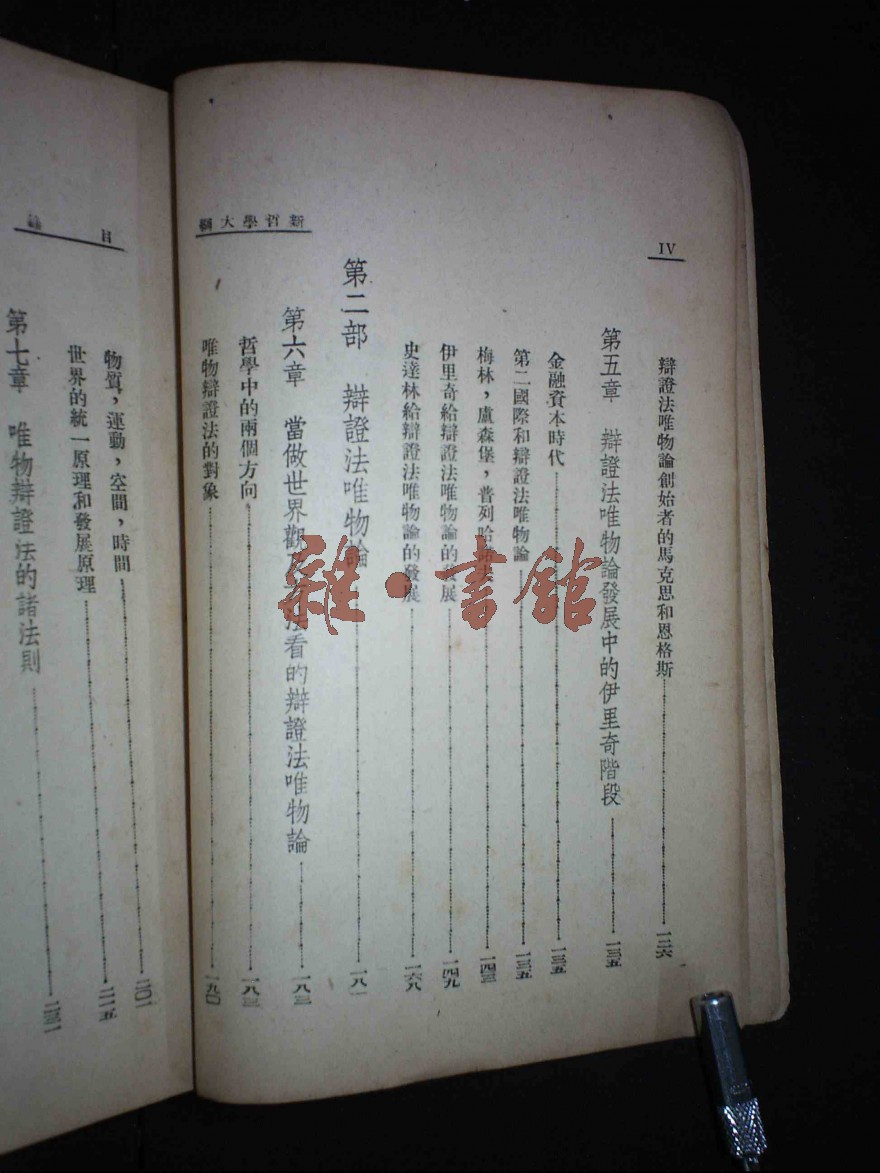 IV
新哲學大綱
辯證法唯物論創始者的馬克思和恩格斯……一二六
第五章 辯證法唯物論發展中的伊里奇階段……一三五
金融資本時代……一三五
第二國際和辯證法唯物論……一三五
梅林，盧森堡，普列哈……一四三
伊里奇給辯證法唯物論的發展……一四九
史達林給辯證法唯物論的發展……一六八
第二部 辯證法唯物論……一八一
第六章 當做世界觀及法看的辯證法唯物論……一八三
哲學中的兩個方向……一八三
唯物辯證法的對象……一九〇
目
物質，運動，空間，時間……二〇一
世界的統一原理和發展原理……二一五
第七章 唯物辯證法的諸法則……二三一
雜·書館